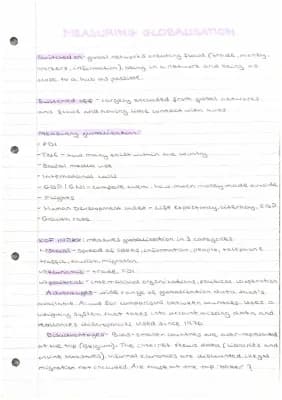 MEASURING GLOBALISATION
Switched on - good networks creating flows (trade, money,
workers, information), being in a network and being as
close to a hub as possible
Switched off - largely excluded from global networks
and flows and having little contact with hubs
Measuring globalisation:
- FDI
- TNCs - how many exist within one country
- Social media use
- International calls
- GDP / GNI - compare them, how much money made outside
- Flights
- Human Development Index - Life expectancy, literacy, GDP
- Growth rate
KOF INDEX: measures globalisation in 3 categories
Social - spread of ideas, information, people, telephone
traffic, tourism, migration
Economic - trade, FDI
Political - international organisations, political cooperation
Advantages - wide range of globalisation data that's
available. Allows for comparison between countries. Uses a
weighting system that takes into account missing data and
measures discrepancies. Used since 1970
Disadvantages - Bias - smaller countries are over-represented
at the top (Belgium). The internet flows data
informal economies are discounted, illegal
migration not included. Are those at the top 'better'?